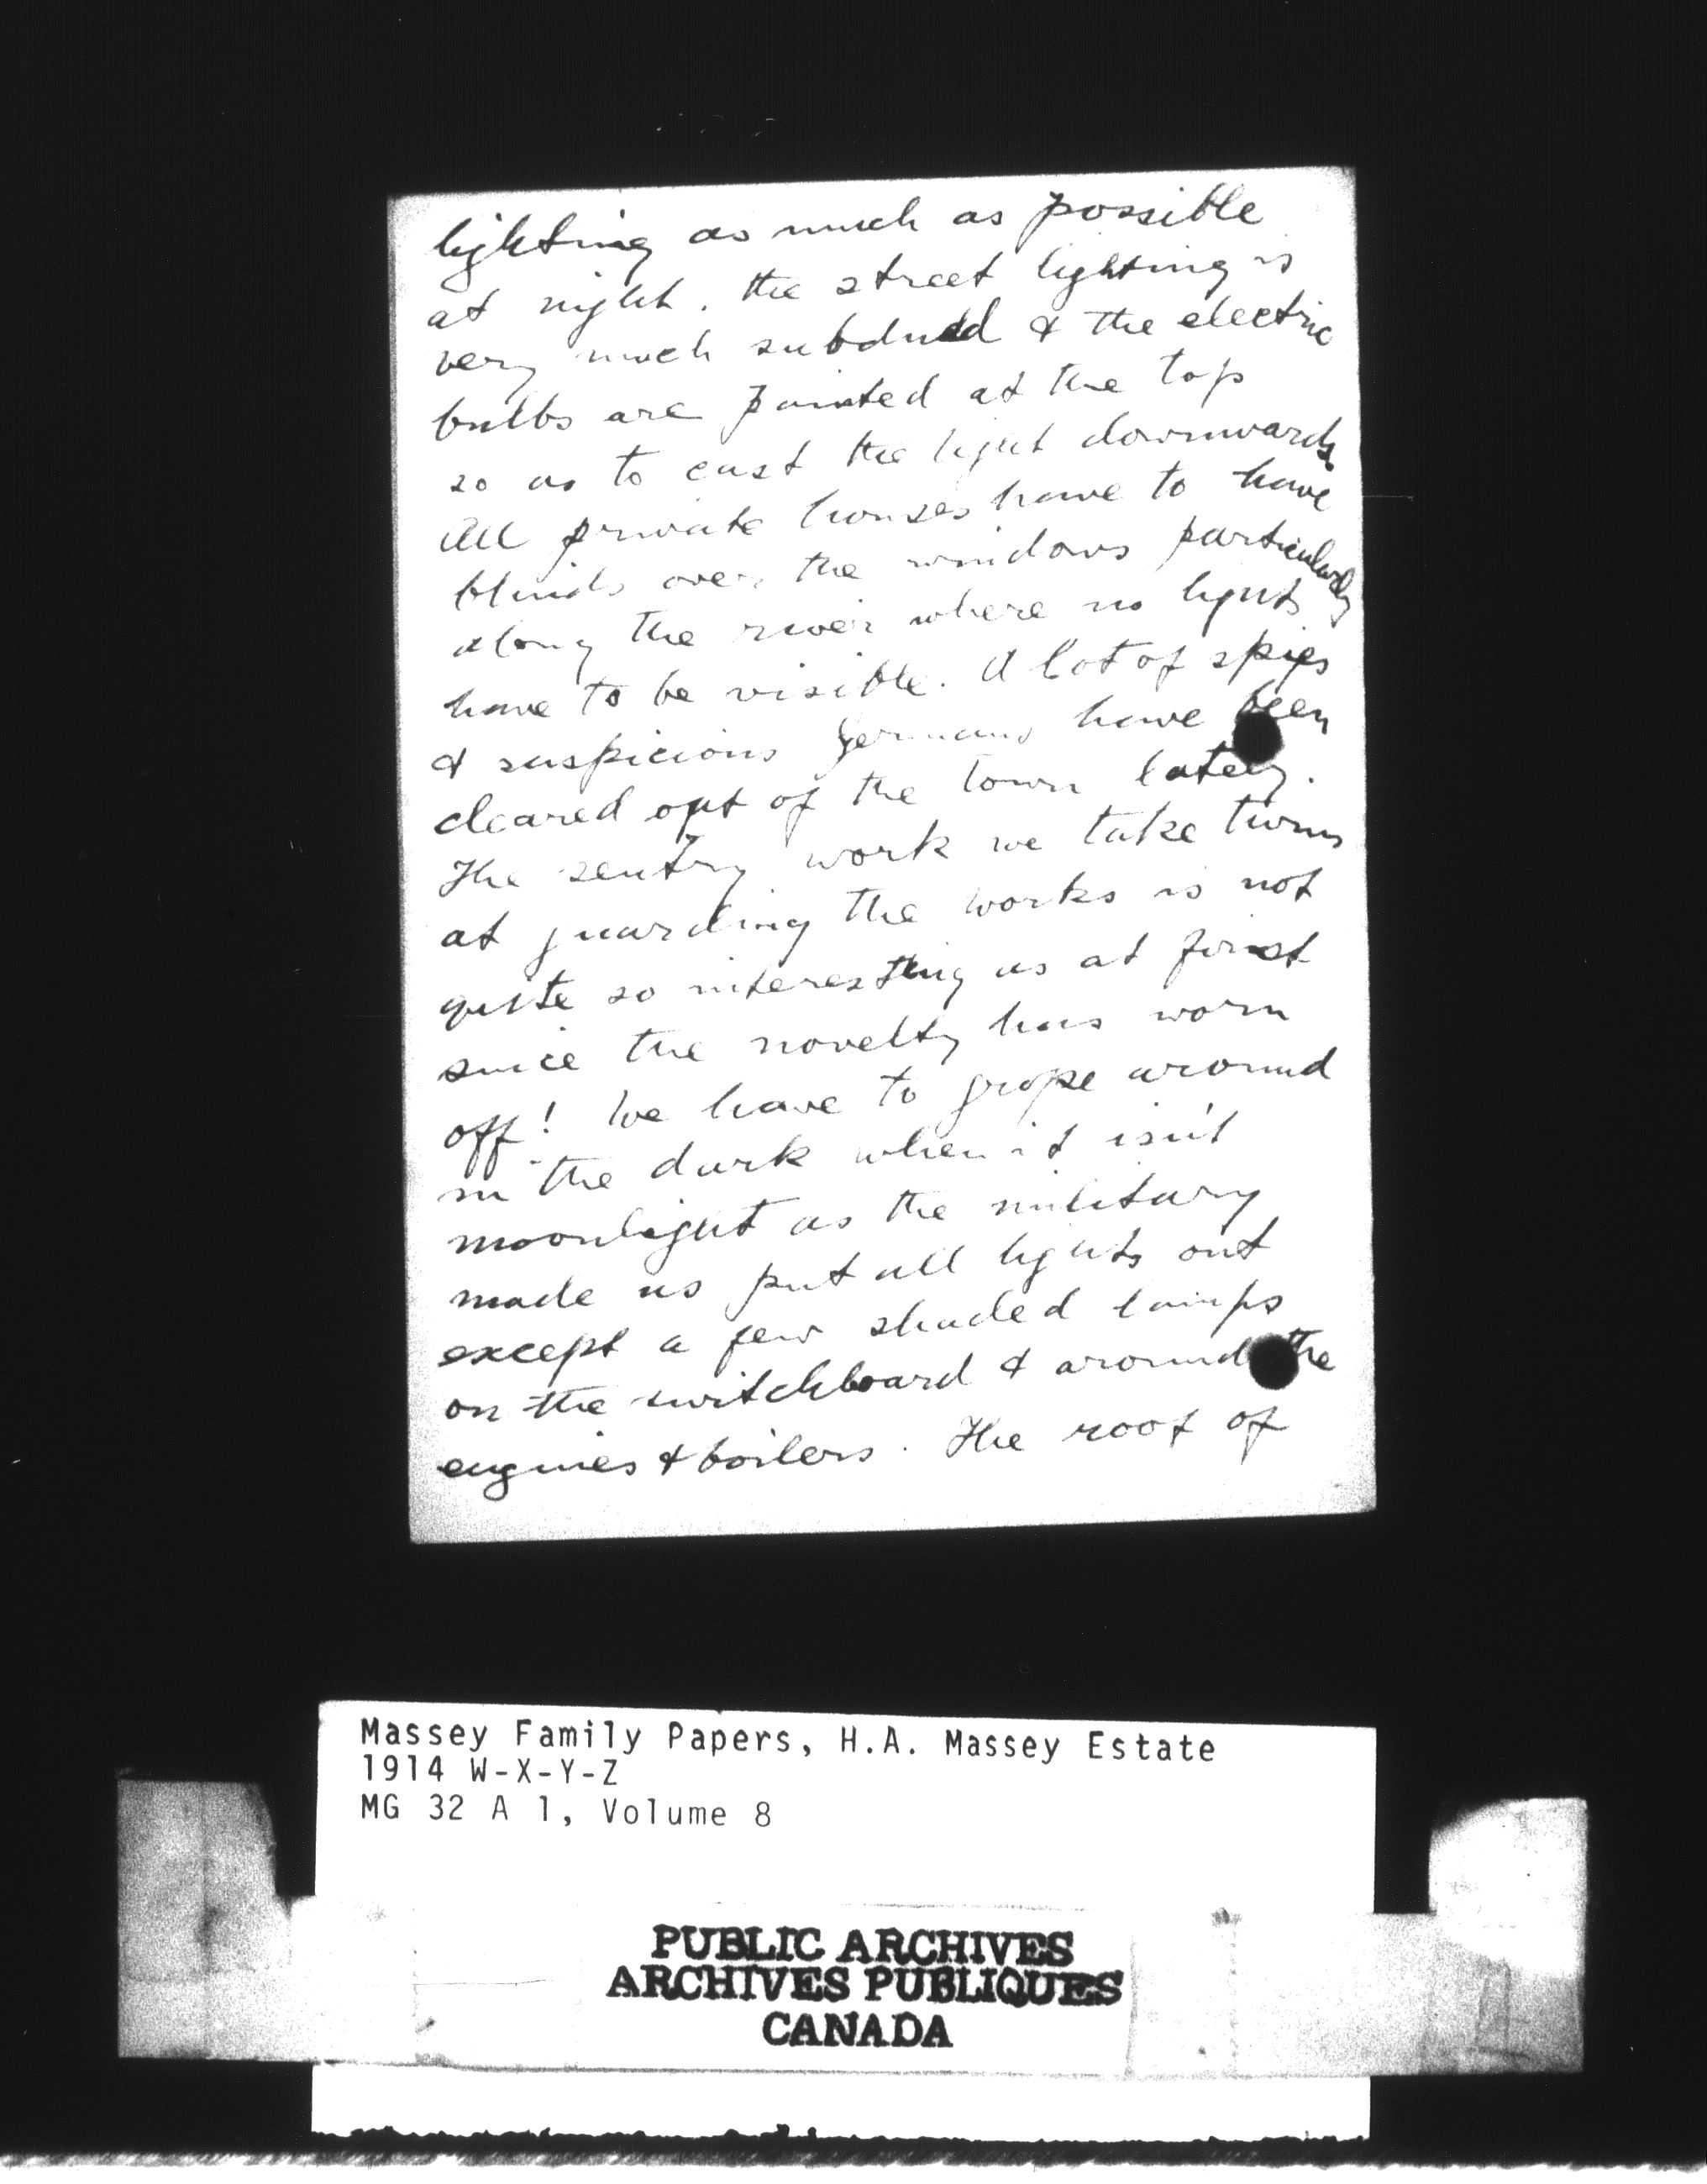 lighting as much as possible
at night. the street lighting is
very much subdued & the electric
bulbs are painted at the top
so as to cast the light downwards.
All private houses have to have
blinds over the windows particularly
along the river where no lights
have to be visible. A lot of spies
& suspicious Germans have been
cleared out of the town lately.
The sentry work we take turns
at guarding the works is not
quite so interesting as at first
since the novelty has worn
off! We have to grope around
in the dark when it isn't
moonlight as the military
made us put all lights out
except a few shaded lamps
on the switchboard & around the
engines & boilers. The roof of
Massey Family Papers, H.A. Massey Estate
1914 W-X-Y-Z
MG 32 A 1, Volume 8
PUBLIC ARCHIVES
ARCHIVES PUBLIQUES
CANADA